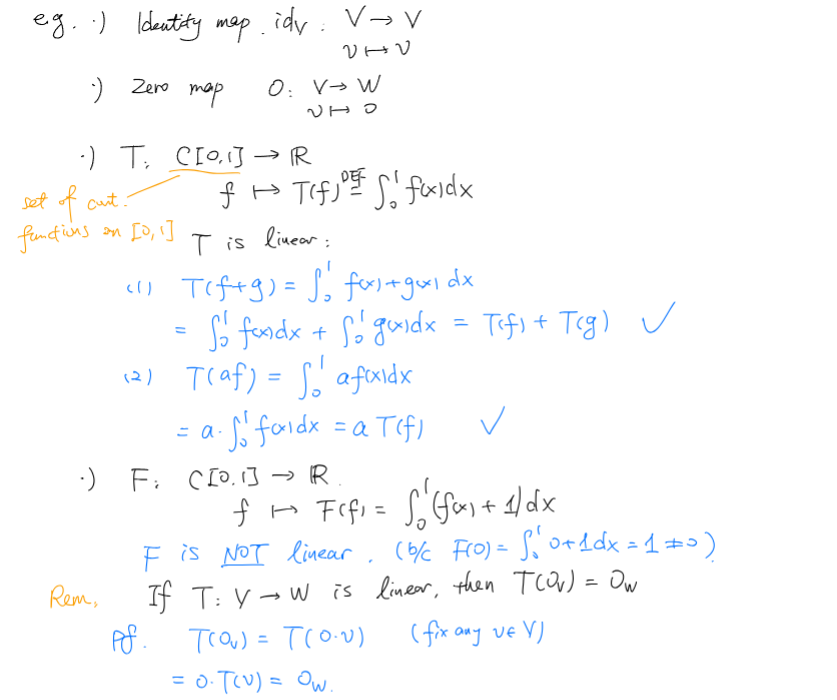 e.g. ·) Identity map. id_V : V → V
v ↦ v
·) Zero map 0: V → W
v ↦ 0
·) T: C[0,1] → ℝ
f ↦ T(f) DEF= ∫₀¹ f(x)dx
set of cont.
functions on [0,1]
T is linear:
(1) T(f+g) = ∫₀¹ f(x)+g(x) dx
= ∫₀¹ f(x)dx + ∫₀¹ g(x)dx = T(f) + T(g) ✓
(2) T(af) = ∫₀¹ af(x)dx
= a·∫₀¹ f(x)dx = a T(f) ✓
·) F: C[0,1] → ℝ.
f ↦ F(f) = ∫₀¹ (f(x) + 1)dx
F is NOT linear. (b/c F(0) = ∫₀¹ 0+1dx = 1 ≠ 0)
Rem. If T: V → W is linear, then T(0_V) = 0_W
Pf. T(0_V) = T(0·v) (fix any v ∈ V)
= 0·T(v) = 0_W.